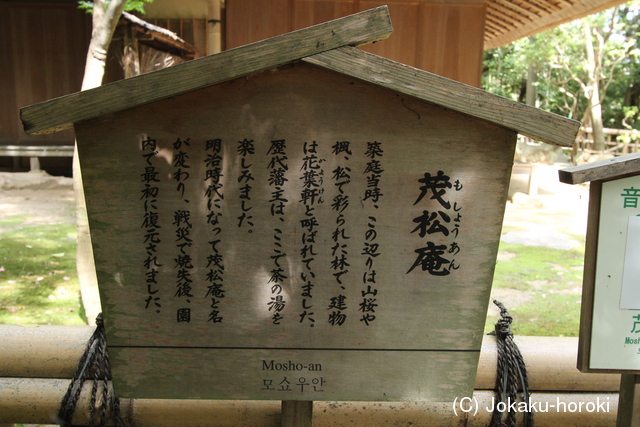 茂松庵
もしょうあん
築庭当時、この辺りは山桜や
楓、松で彩られた林で、建物
は花葉軒と呼ばれていました。
歴代藩主は、ここで茶の湯を
楽しみました。
明治時代になって茂松庵と名
が変わり、戦災で焼失後、園
内で最初に復元されました。
Mosho-an
모쇼우안
音
茂
Mosh
(C) Jokaku-horoki